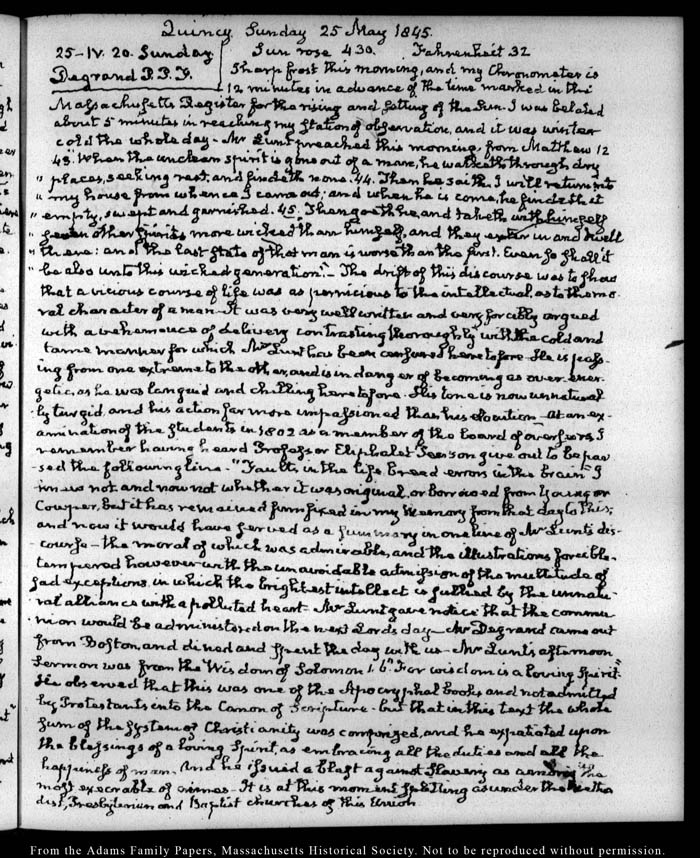 Quincy Sunday 25 May 1845.
25-IV. 20. Sunday Sun rose 4 30. Fahrenheit 32
Degrand P.P.F. Sharp frost this morning, and my Chronometer is
12 minutes in advance of the time marked in the
Massachusetts Register for the rising and setting of the Sun. I was belated
about 5 minutes in reaching my station of observation, and it was winter
cold the whole day - Mr Lunt preached this morning from Matthew 12
43. "When the unclean spirit is gone out of a man, he walketh through dry
" places, seeking rest, and findeth none. 44. Then he saith I will return into
" my house from whence I came out; and when he is come, he findeth it
" empty, swept and garnished. 45. Then goeth he, and taketh with himself
" seven other spirits more wicked than himself, and they enter in and dwell
" there: and the last state of that man is worse than the first. Even so shall it
" be also unto this wicked generation." - The drift of this discourse was to shew
that a vicious course of life was as pernicious to the intellectual, as to the mo-
ral character of a man - It was very well written and very forcibly argued
with a vehemence of delivery contrasting thoroughly with the cold and
tame manner for which Mr Lunt has been censured heretofore - He is pass-
ing from one extreme to the other, and is in danger of becoming as over-ener-
getic, as he was languid and chilling heretofore. His tone is now unnatural-
ly turgid, and his action far more impassioned than his elocution - At an ex-
amination of the students in 1802 as a member of the board of overseers, I
remember having heard Professor Eliphalet Pearson give out to be par-
sed the following line - "Faults in the life breed errors in the brain" I
knew not and now not whether it was original, or borrowed from Young or
Cowper, but it has remained firm fixed in my Memory from that day to this;
and now it would have served as a summary in one line of Mr Lunt's dis-
course - the moral of which was admirable, and the illustrations forcible -
tempered however with the unavoidable admission of the multitude of
sad exceptions, in which the brightest intellect is sullied by the unnatu-
ral alliance with a polluted heart - Mr Lunt gave notice that the commu-
nion would be administered on the next Lords day - Mr Degrand came out
from Boston, and dined and spent the day with us - Mr Lunt's afternoon
Sermon was from the Wisdom of Solomon 1. 6. "For wisdom is a loving Spirit"
He observed that this was one of the Apocryphal books and not admitted
by Protestants into the Canon of Scripture - but that in this text the whole
sum of the system of Christianity was comprized, and he expatiated upon
the blessings of a loving Spirit, as embracing all the duties and all the
happiness of man. And he issued a blast against Slavery as among the
most execrable of crimes - It is at this moment splitting asunder the Metho-
dist, Presbyterian and Baptist churches of this Union.
From the Adams Family Papers, Massachusetts Historical Society. Not to be reproduced without permission.